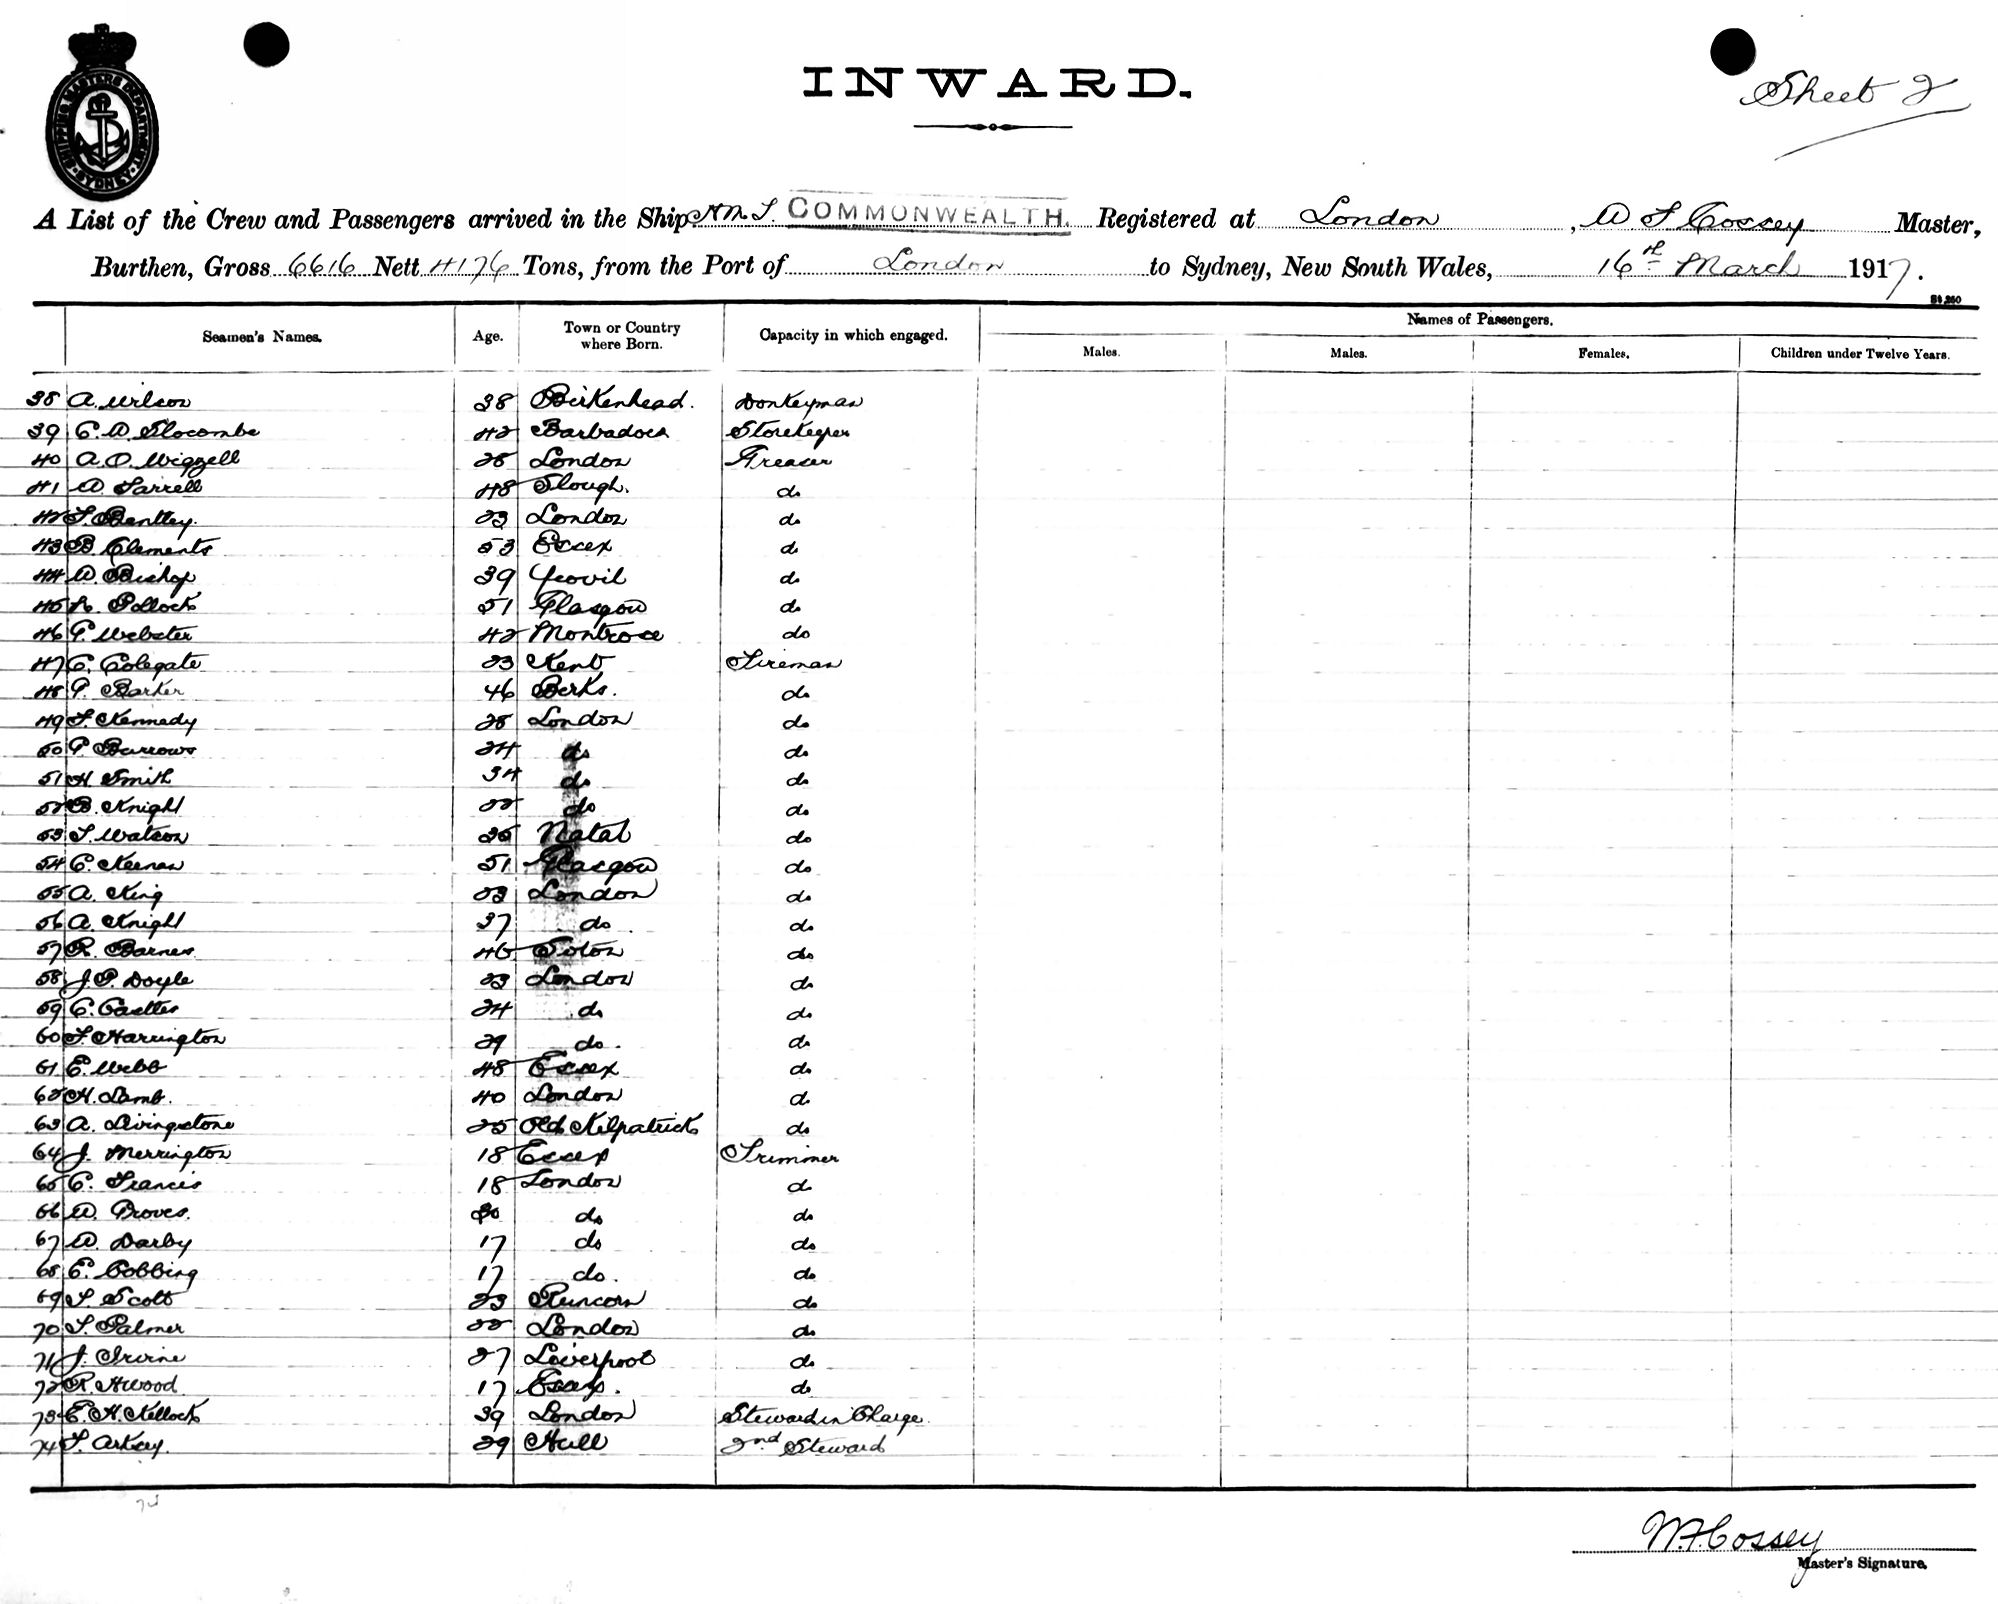 SHIPPING MASTERS DEPARTMENT. SYDNEY.
INWARD.
Sheet 2
A List of the Crew and Passengers arrived in the Ship COMMONWEALTH. Registered at London, W F Cossey Master,
Burthen, Gross 6616 Nett 4176 Tons, from the Port of London to Sydney, New South Wales, 16th March 1917.
Seamen's Names. Age. Town or Country where Born. Capacity in which engaged. Names of Passengers.
Males. Males. Females. Children under Twelve Years.
38 A. Wilson 38 Birkenhead. Donkeyman
39 C. W. Slocombe 42 Barbadoes Storekeeper
40 A. O. Wigzell 28 London Greaser
41 W. Farrell 48 Slough. do
42 F. Bentley. 23 London do
43 B. Clements 53 Essex do
44 W. Bishop 39 Yeovil do
45 Pollock 51 Glasgow do
46 G. Webster 42 Montrose do
47 C. Colegate 23 Kent Fireman
48 G. Barker 46 Berks. do
49 F. Kennedy 28 London do
50 G. Barrows 24 do do
51 H. Smith 34 do do
52 B. Knight 22 do do
53 F. Watson Natal do
54 C. Keenan 51 Glasgow do
55 A. King 23 London do
56 A. Knight 37 do do
57 R. Barnes. Soton do
58 J. P. Doyle 23 London do
59 C. Castles 24 do do
60 Harrington 29 do. do
61 E. Webb 48 Essex do
62 H. Lamb. 40 London do
63 A. Livingstone 25 Old Kilpatrick do
64 J. Merrington 18 Essex Trimmer
65 C. Francis 18 London do
66 W. Groves. do do
67 W. Darby 17 do do
68 E. Cobbing 17 do. do
69 Scott 23 Runcorn do
70 Palmer 22 London do
71 J. Irvine 27 Liverpool do
72 R. Atwood 17 Essex. do
73 E. H. Kellock 39 London Steward in Charge.
74 Arksey. 29 Hull 2nd Steward
W. F. Cossey
Master's Signature.